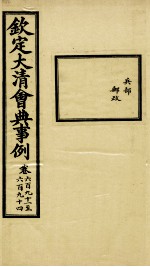 兵部
郵政
欽定大清會典事例
卷六百九十二至
六百九十四